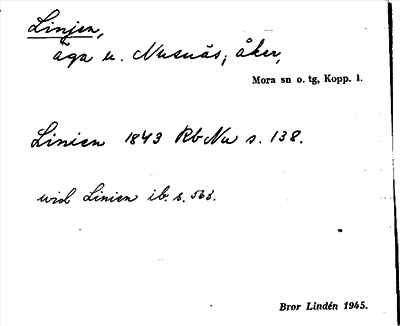 Linjen,
äga u. Nusnäs; åker,
Mora sn o. tg, Kopp. l.
Linien 1843 RbNu s. 138.
wid Linien ib. s. 563.
Bror Lindén 1945.